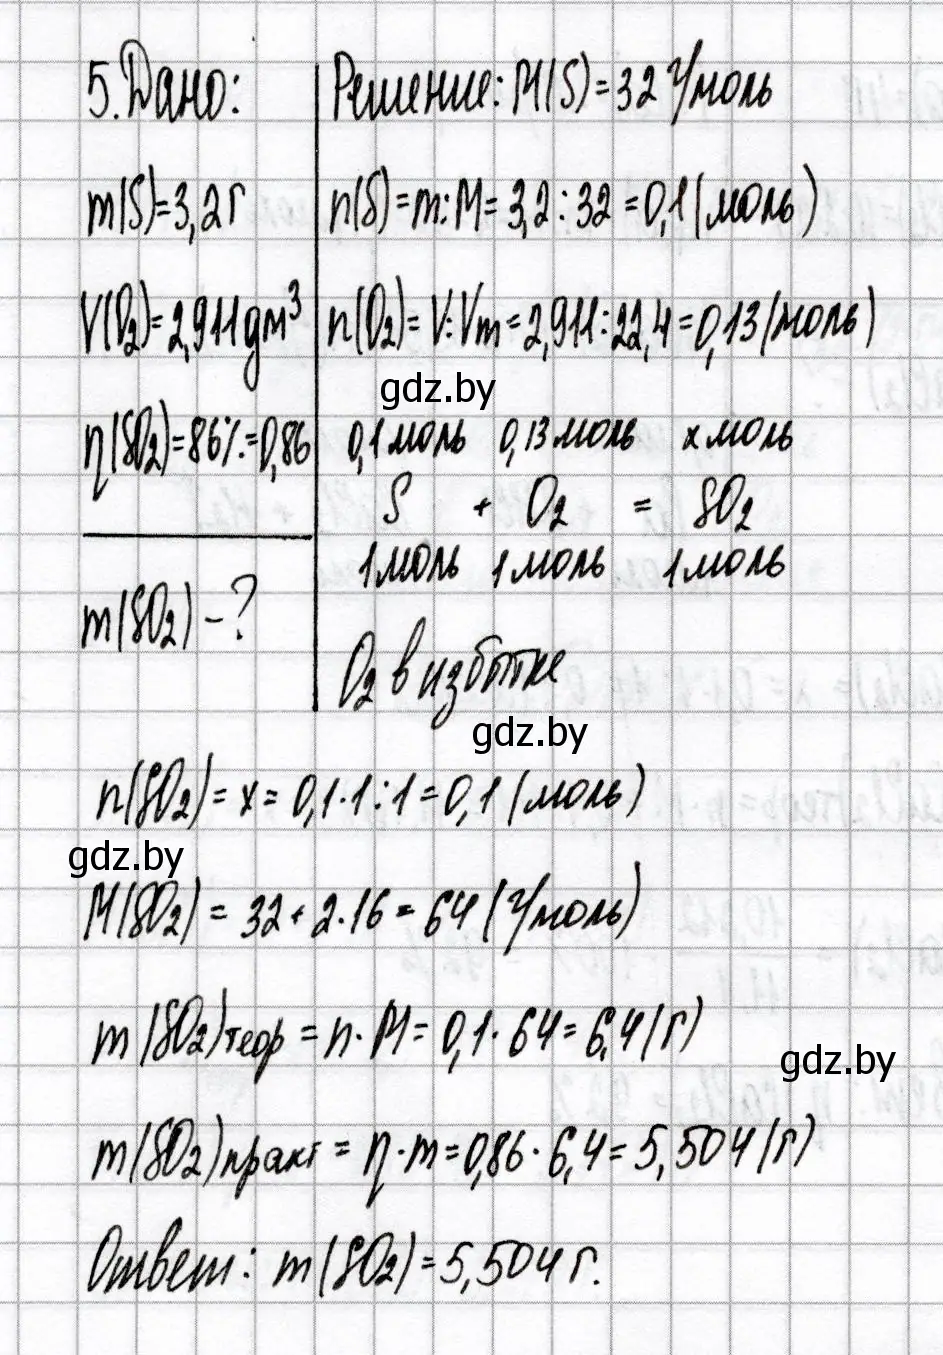 5. Дано:
m(S)=3,2г
V(O₂)=2,911дм³
η(SO₂)=86%=0,86
m(SO₂)-?
Решение: M(S)=32 г/моль
n(S)=m:M=3,2:32=0,1(моль)
n(O₂)=V:Vm=2,911:22,4=0,13(моль)
gdz.by
0,1моль 0,13моль x моль
S + O₂ = SO₂
1моль 1моль 1моль
O₂ в избытке
gdz.by
n(SO₂)=x=0,1·1:1=0,1(моль)
gdz.by
M(SO₂)=32+2·16=64(г/моль)
m(SO₂)теор=n·M=0,1·64=6,4(г)
gdz.by
m(SO₂)практ=η·m=0,86·6,4=5,504(г)
Ответ: m(SO₂)=5,504г.